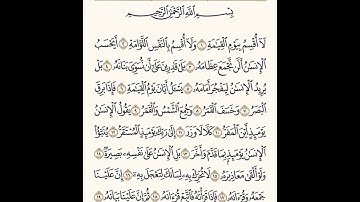 بِسْمِ اللَّهِ الرَّحْمَٰنِ الرَّحِيمِ
لَا أُقْسِمُ بِيَوْمِ الْقِيَامَةِ ١ وَلَا أُقْسِمُ بِالنَّفْسِ اللَّوَّامَةِ ٢ أَيَحْسَبُ
الْإِنسَانُ أَلَّن نَّجْمَعَ عِظَامَهُ ٣ بَلَىٰ قَادِرِينَ عَلَىٰ أَن نُّسَوِّيَ بَنَانَهُ ٤ بَلْ
يُرِيدُ الْإِنسَانُ لِيَفْجُرَ أَمَامَهُ ٥ يَسْأَلُ أَيَّانَ يَوْمُ الْقِيَامَةِ ٦ فَإِذَا بَرِقَ
الْبَصَرُ ٧ وَخَسَفَ الْقَمَرُ ٨ وَجُمِعَ الشَّمْسُ وَالْقَمَرُ ٩ يَقُولُ الْإِنسَانُ
يَوْمَئِذٍ أَيْنَ الْمَفَرُّ ١٠ كَلَّا لَا وَزَرَ ١١ إِلَىٰ رَبِّكَ يَوْمَئِذٍ الْمُسْتَقَرُّ ١٢ يُنَبَّأُ
الْإِنسَانُ يَوْمَئِذٍ بِمَا قَدَّمَ وَأَخَّرَ ١٣ بَلِ الْإِنسَانُ عَلَىٰ نَفْسِهِ بَصِيرَةٌ ١٤
وَلَوْ أَلْقَىٰ مَعَاذِيرَهُ ١٥ لَا تُحَرِّكْ بِهِ لِسَانَكَ لِتَعْجَلَ بِهِ ١٦ إِنَّ عَلَيْنَا
جَمْعَهُ وَقُرْآنَهُ ١٧ فَإِذَا قَرَأْنَاهُ فَاتَّبِعْ قُرْآنَهُ ١٨ ثُمَّ إِنَّ عَلَيْنَا بَيَانَهُ ١٩